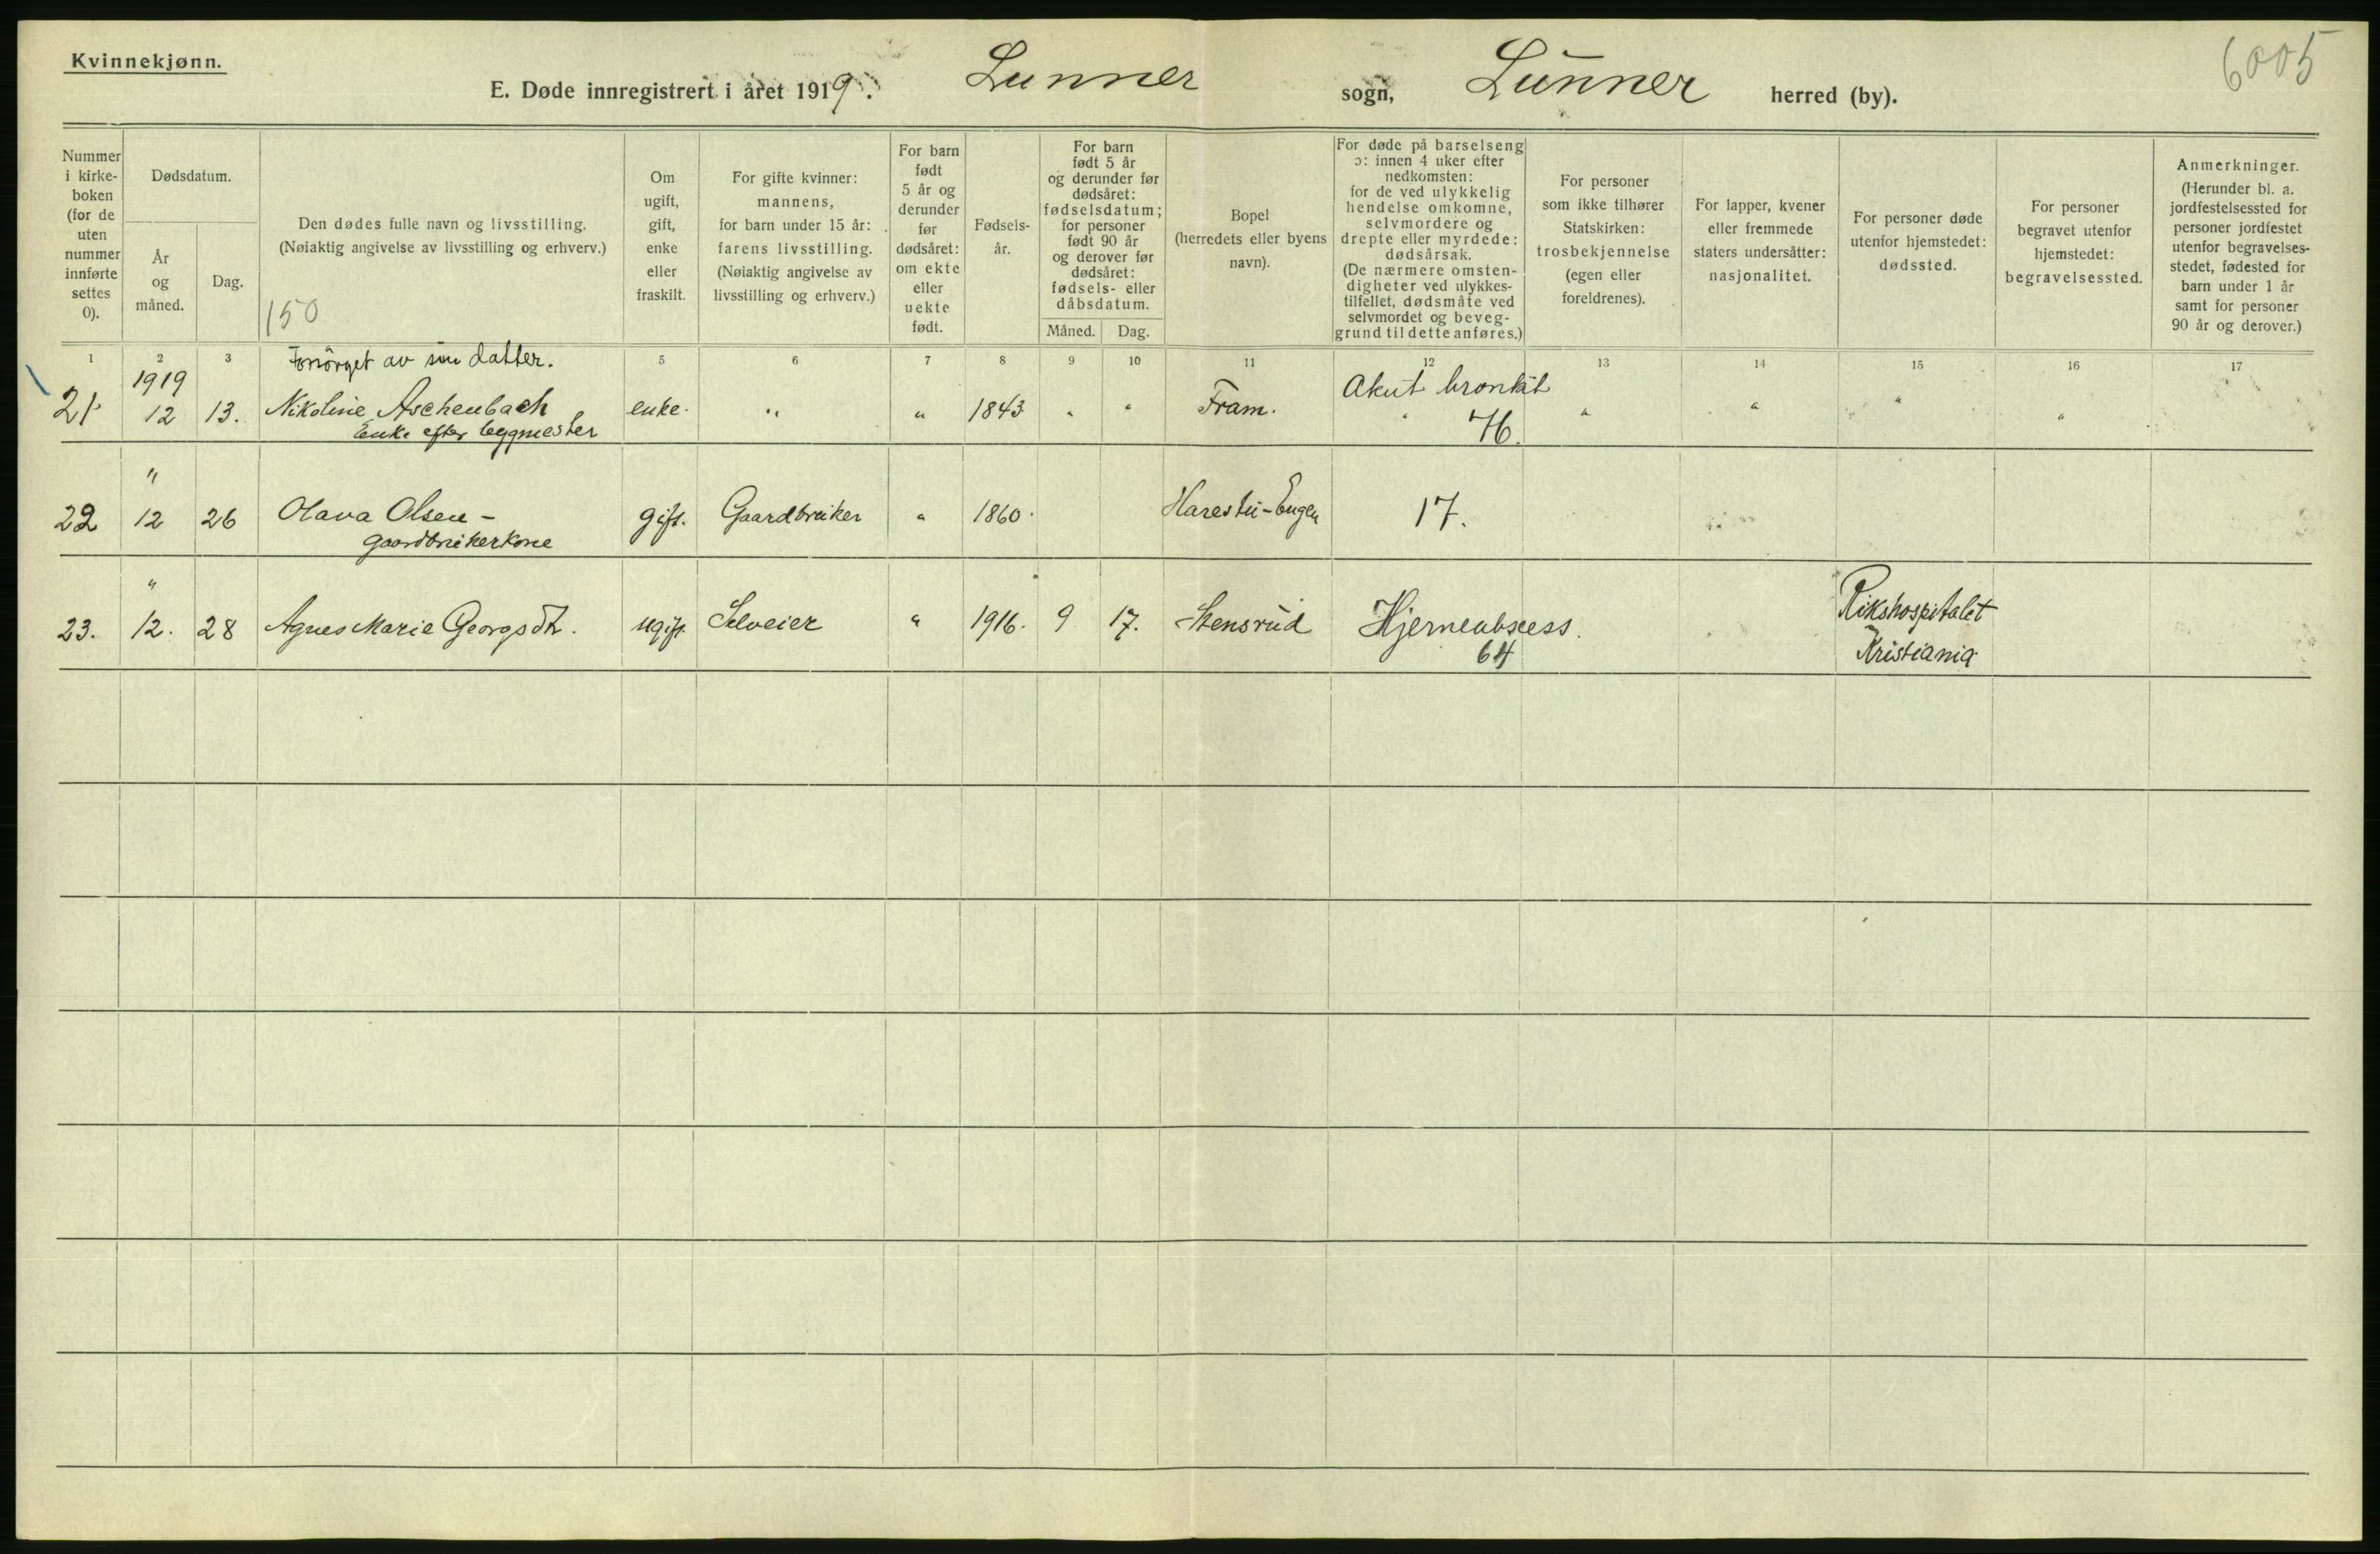 Kvinnekjønn.
6005
E. Døde innregistrert i året 1919. Lunner sogn, Lunner herred (by).
Nummer i kirke-boken (for de uten nummer innførte settes 0).
Dødsdatum.
År og måned.
Dag.
Den dødes fulle navn og livsstilling.
(Nøiaktig angivelse av livsstilling og erhverv.)
150
Om ugift, gift, enke eller fraskilt.
For gifte kvinner: mannens, for barn under 15 år: farens livsstilling. (Nøiaktig angivelse av livsstilling og erhverv.)
For barn født 5 år og derunder før dødsåret: om ekte eller uekte født.
Fødsels-år.
For barn født 5 år og derunder før dødsåret: fødselsdatum; for personer født 90 år og derover før dødsåret: fødsels- eller dåbsdatum.
Måned. Dag.
Bopel (herredets eller byens navn).
For døde på barselseng ɔ: innen 4 uker efter nedkomsten: for de ved ulykkelig hendelse omkomne, selvmordere og drepte eller myrdede: dødsårsak. (De nærmere omsten-digheter ved ulykkes-tilfellet, dødsmåte ved selvmordet og beveg-grund til dette anføres.)
For personer som ikke tilhører Statskirken: trosbekjennelse (egen eller foreldrenes).
For lapper, kvener eller fremmede staters undersåtter: nasjonalitet.
For personer døde utenfor hjemstedet: dødssted.
For personer begravet utenfor hjemstedet: begravelsessted.
Anmerkninger. (Herunder bl. a. jordfestelsessted for personer jordfestet utenfor begravelses-stedet, fødested for barn under 1 år samt for personer 90 år og derover.)
1 2 3 5 6 7 8 9 10 11 12 13 14 15 16 17
Forsörget av sin datter.
1919
21 12 13. Nikoline Aschenbach enke. " " 1843 " " Fram. Akut bronkit " " " " "
Enke efter byggmester
76.
"
22 12 26 Olava Olsen - gift. Gaardbruker " 1860. Harestu-Engen 17.
Gaardbrukerkone
"
23. 12. 28 Agnes Marie Georgsdtr. ugift. Selveier " 1916. 9 17. Stensrud Hjerneabscess. Rikshospitalet
64 Kristiania